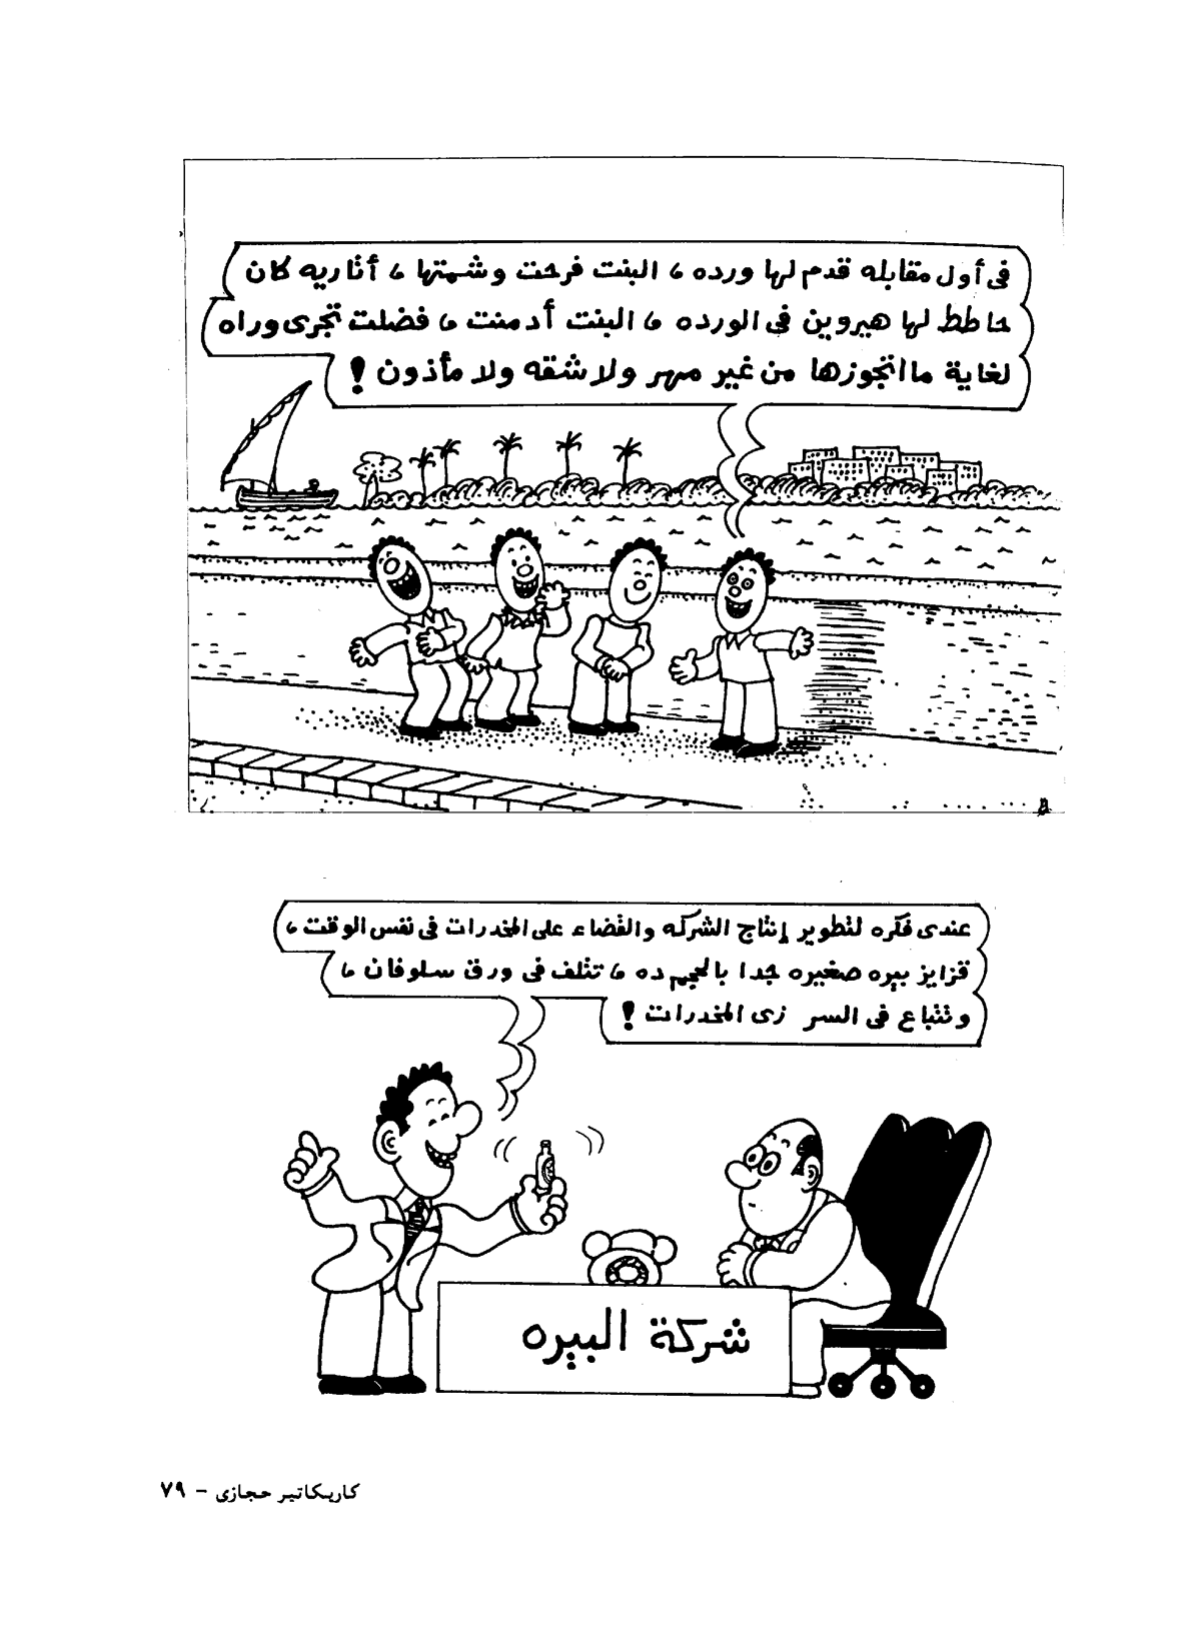 فى أول مقابله قدم لها ورده ، البنت فرحت وشمتها ، أتاريه كان
حاطط لها هيروين فى الورده ، البنت أدمنت ، فضلت تجرى وراه
لغاية ما اتجوزها من غير مهر ولا شقه ولا مأذون !
عندى فكره لتطوير إنتاج الشركه والقضاء على المخدرات فى نفس الوقت ،
قزايز بيره صغيره جدا بالحجم ده ، تتلف فى ورق سلوفان ،
وتتباع فى السر زى المخدرات !
شركة البيره
كاريكاتير حجازى - ٧٩